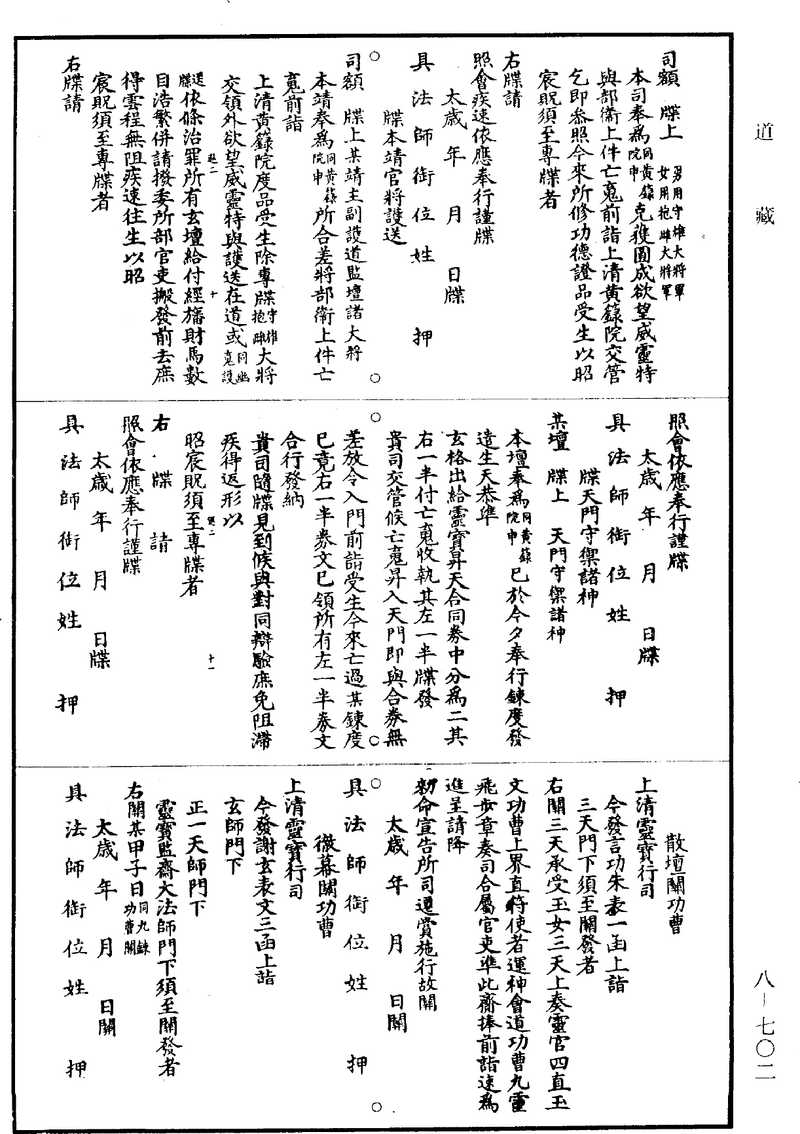 道藏
司額　牒上　男用守雄大將軍女用抱雌大將軍
本司奉為同黃籙院申克獲圓成欲望威靈特
與部衛上件亡䰟前詣上清黃籙院交管
乞即叅照今來所修功德證品受生以昭
宸貺須至專牒者
右牒請
照會疾速依應奉行謹牒
太歲　年　月　日牒
具法師銜位姓　押
牒本靖官將護送
司額　牒上某靖主副護道監壇諸大將
本靖奉為同黃籙院申所合差將部衛上件亡
䰟前詣
上清黃籙院度品受生除專牒守雄抱雌大將
交領外欲望威靈特與護送在道或同幽䰟護
送牒依條治罪所有玄壇給付經旛財馬數
目浩繁併請撥委所部官吏搬發前去庶
得雲程無阻疾速往生以昭
宸貺須至專牒者
右牒請
照會依應奉行謹牒
太歲　年　月　日牒
具法師銜位姓　押
牒天門守禦諸神
某壇　牒上　天門守禦諸神
本壇奉為同黃籙院申已於今夕奉行鍊度發
遣生天恭準
玄格出給靈寶昇天合同券中分為二其
右一半付亡䰟收執其左一半牒發
貴司交管候亡䰟昇入天門即與合券無
差放令入門前詣受生今來亡過某鍊度
已竟右一半券文已領所有左一半券文
合行發納
貴司隨牒見到候與對同辯驗庶免阻滯
疾得返形以
昭宸貺須至專牒者
右牒請
照會依應奉行謹牒
太歲　年　月　日牒
具法師銜位姓　押
散壇關功曹
上清靈寶行司
今發言功朱表一函上詣
三天門下須至關發者
右關三天承受玉女三天上奏靈官四直玉
文功曹上界直符使者運神會道功曹九靈
飛步章奏司合屬官吏準此齎捧前詣速為
進呈請降
勑命宣告所司遷賞施行故關
太歲　年　月　日關
具法師銜位姓　押
徹幕關功曹
上清靈寶行司
今發謝玄表文三函上詣
玄師門下
正一天師門下
靈寶監齋大法師門下須至關發者
右關某甲子日同九鍊功曹關
太歲　年　月　日關
具法師銜位姓　押
八－七〇二